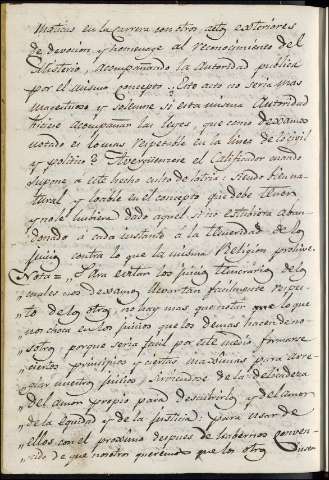 maticas en la Carrera con otros actos exteriores
de devocion y homenage al reconocimiento del
Misterio, acompañando la Autoridad publica
por el mismo concepto. ¿Este acto no seria mas
magestuoso y solemne si esta misma Autoridad
hiciese acompañar las leyes, que como dexamos
notado es lo mas respetable en la linea de lo Civil
y politico? Averguencese el Calificador cuando
supone a este hecho culto de latria: siendo tan na-
tural y loable en el concepto que debe tener
y no le hubiera dado aquel si no estubiera aban-
donado a cada instante a la temeridad de los
juicios contra lo que la misma Religion prohive.
Nota = "Para evitar los juicios temerarios de los
cuales nos dexamos llevar tan facilmente respec-
to de los otros, no hay mas que notar lo que
nos choca en los juicios que los demas hacen de no-
sotros, porque seria facil por este medio formarse
ciertos principios y ciertas maximas para arre-
glar nuestros juicios: sirviendose de la delicadeza
del amor propio para descubrirlos, y del amor
de la equidad y de la justicia, para usar de
ellos con el proximo despues de habernos conven-
cido de que nosotros queremos que los otros